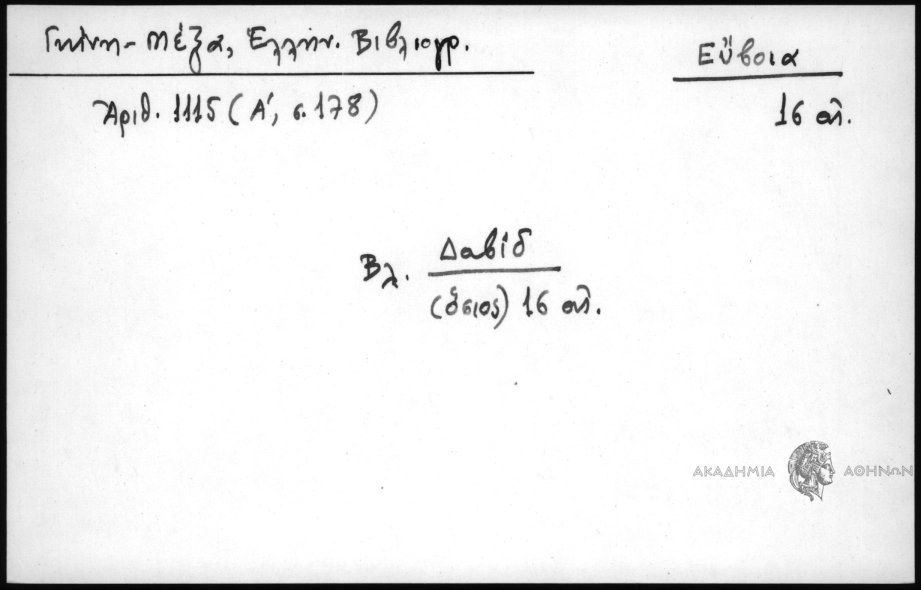 Γκίνη - Μέξα, Ἑλλην. Βιβλιογρ.
Εὔβοια
Ἀριθ. 1115 (Α΄, σ. 178)
16 αἰ.
Βλ. Δαβίδ
(ὅσιος) 16 αἰ.
ΑΚΑΔΗΜΙΑ ΑΘΗΝΩΝ